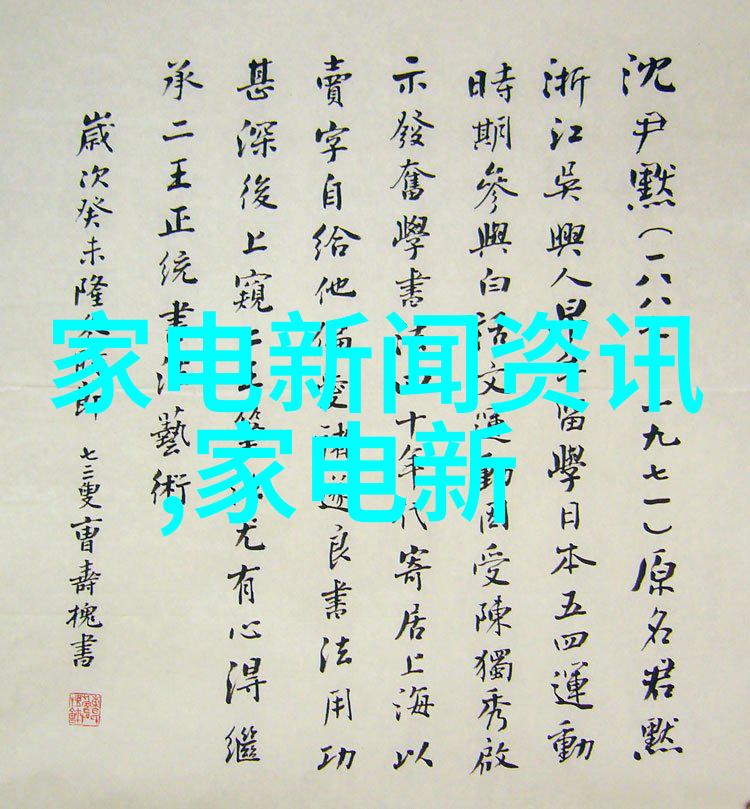 沈尹默（一八八一九七一）原名君默
浙江吳興人早年留學日本五四運動
時期參與白話文運動因受陳獨秀啟
示發奮學書法四十年代寄居上海以
賣字自給他偏愛褚遂良書法用功
甚深後上窺二王筆法尤有心得繼
承二王正统書法藝術
歲次癸未隆冬時節 七三叟曹壽槐書
家电新闻资讯
,家电新